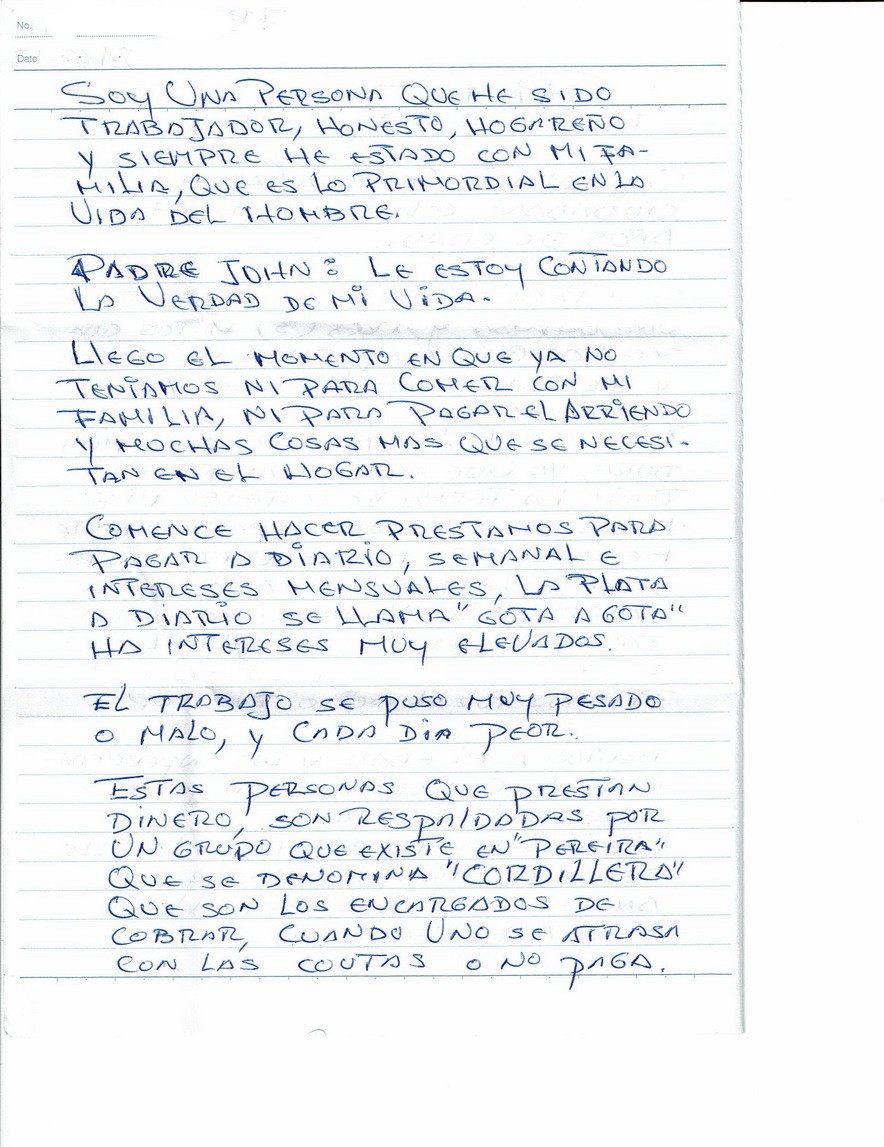 No.
Date
SOY UNA PERSONA QUE HE SIDO
TRABAJADOR, HONESTO, HOGAREÑO
Y SIEMPRE HE ESTADO CON MI FA-
MILIA, QUE ES LO PRIMORDIAL EN LA
VIDA DEL HOMBRE.
PADRE JOHN: LE ESTOY CONTANDO
LA VERDAD DE MI VIDA.
LLEGO EL MOMENTO EN QUE YA NO
TENIAMOS NI PARA COMER CON MI
FAMILIA, NI PARA PAGAR EL ARRIENDO
Y MUCHAS COSAS MAS QUE SE NECESI-
TAN EN EL HOGAR.
COMENCE HACER PRESTAMOS PARA
PAGAR A DIARIO, SEMANAL E
INTERESES MENSUALES, LA PLATA
A DIARIO SE LLAMA "GOTA A GOTA"
HA INTERESES MUY ELEVADOS.
EL TRABAJO SE PUSO MUY PESADO
O MALO, Y CADA DIA PEOR.
ESTAS PERSONAS QUE PRESTAN
DINERO, SON RESPALDADAS POR
UN GRUPO QUE EXISTE EN "PEREIRA"
QUE SE DENOMINA "CORDILLERA"
QUE SON LOS ENCARGADOS DE
COBRAR, CUANDO UNO SE ATRASA
CON LAS COUTAS O NO PAGA.